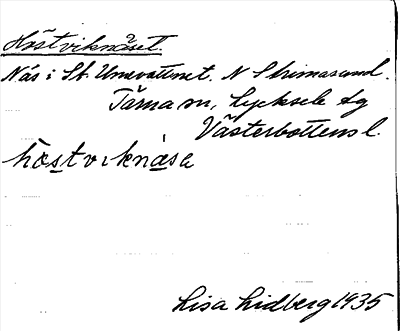 Höstviknäset.
Näs i St. Umevattnet. N Strimasund.
Tärna sn, Lycksele tg
Västerbottens l.
hö̀stviknása
Lisa Lidberg 1935